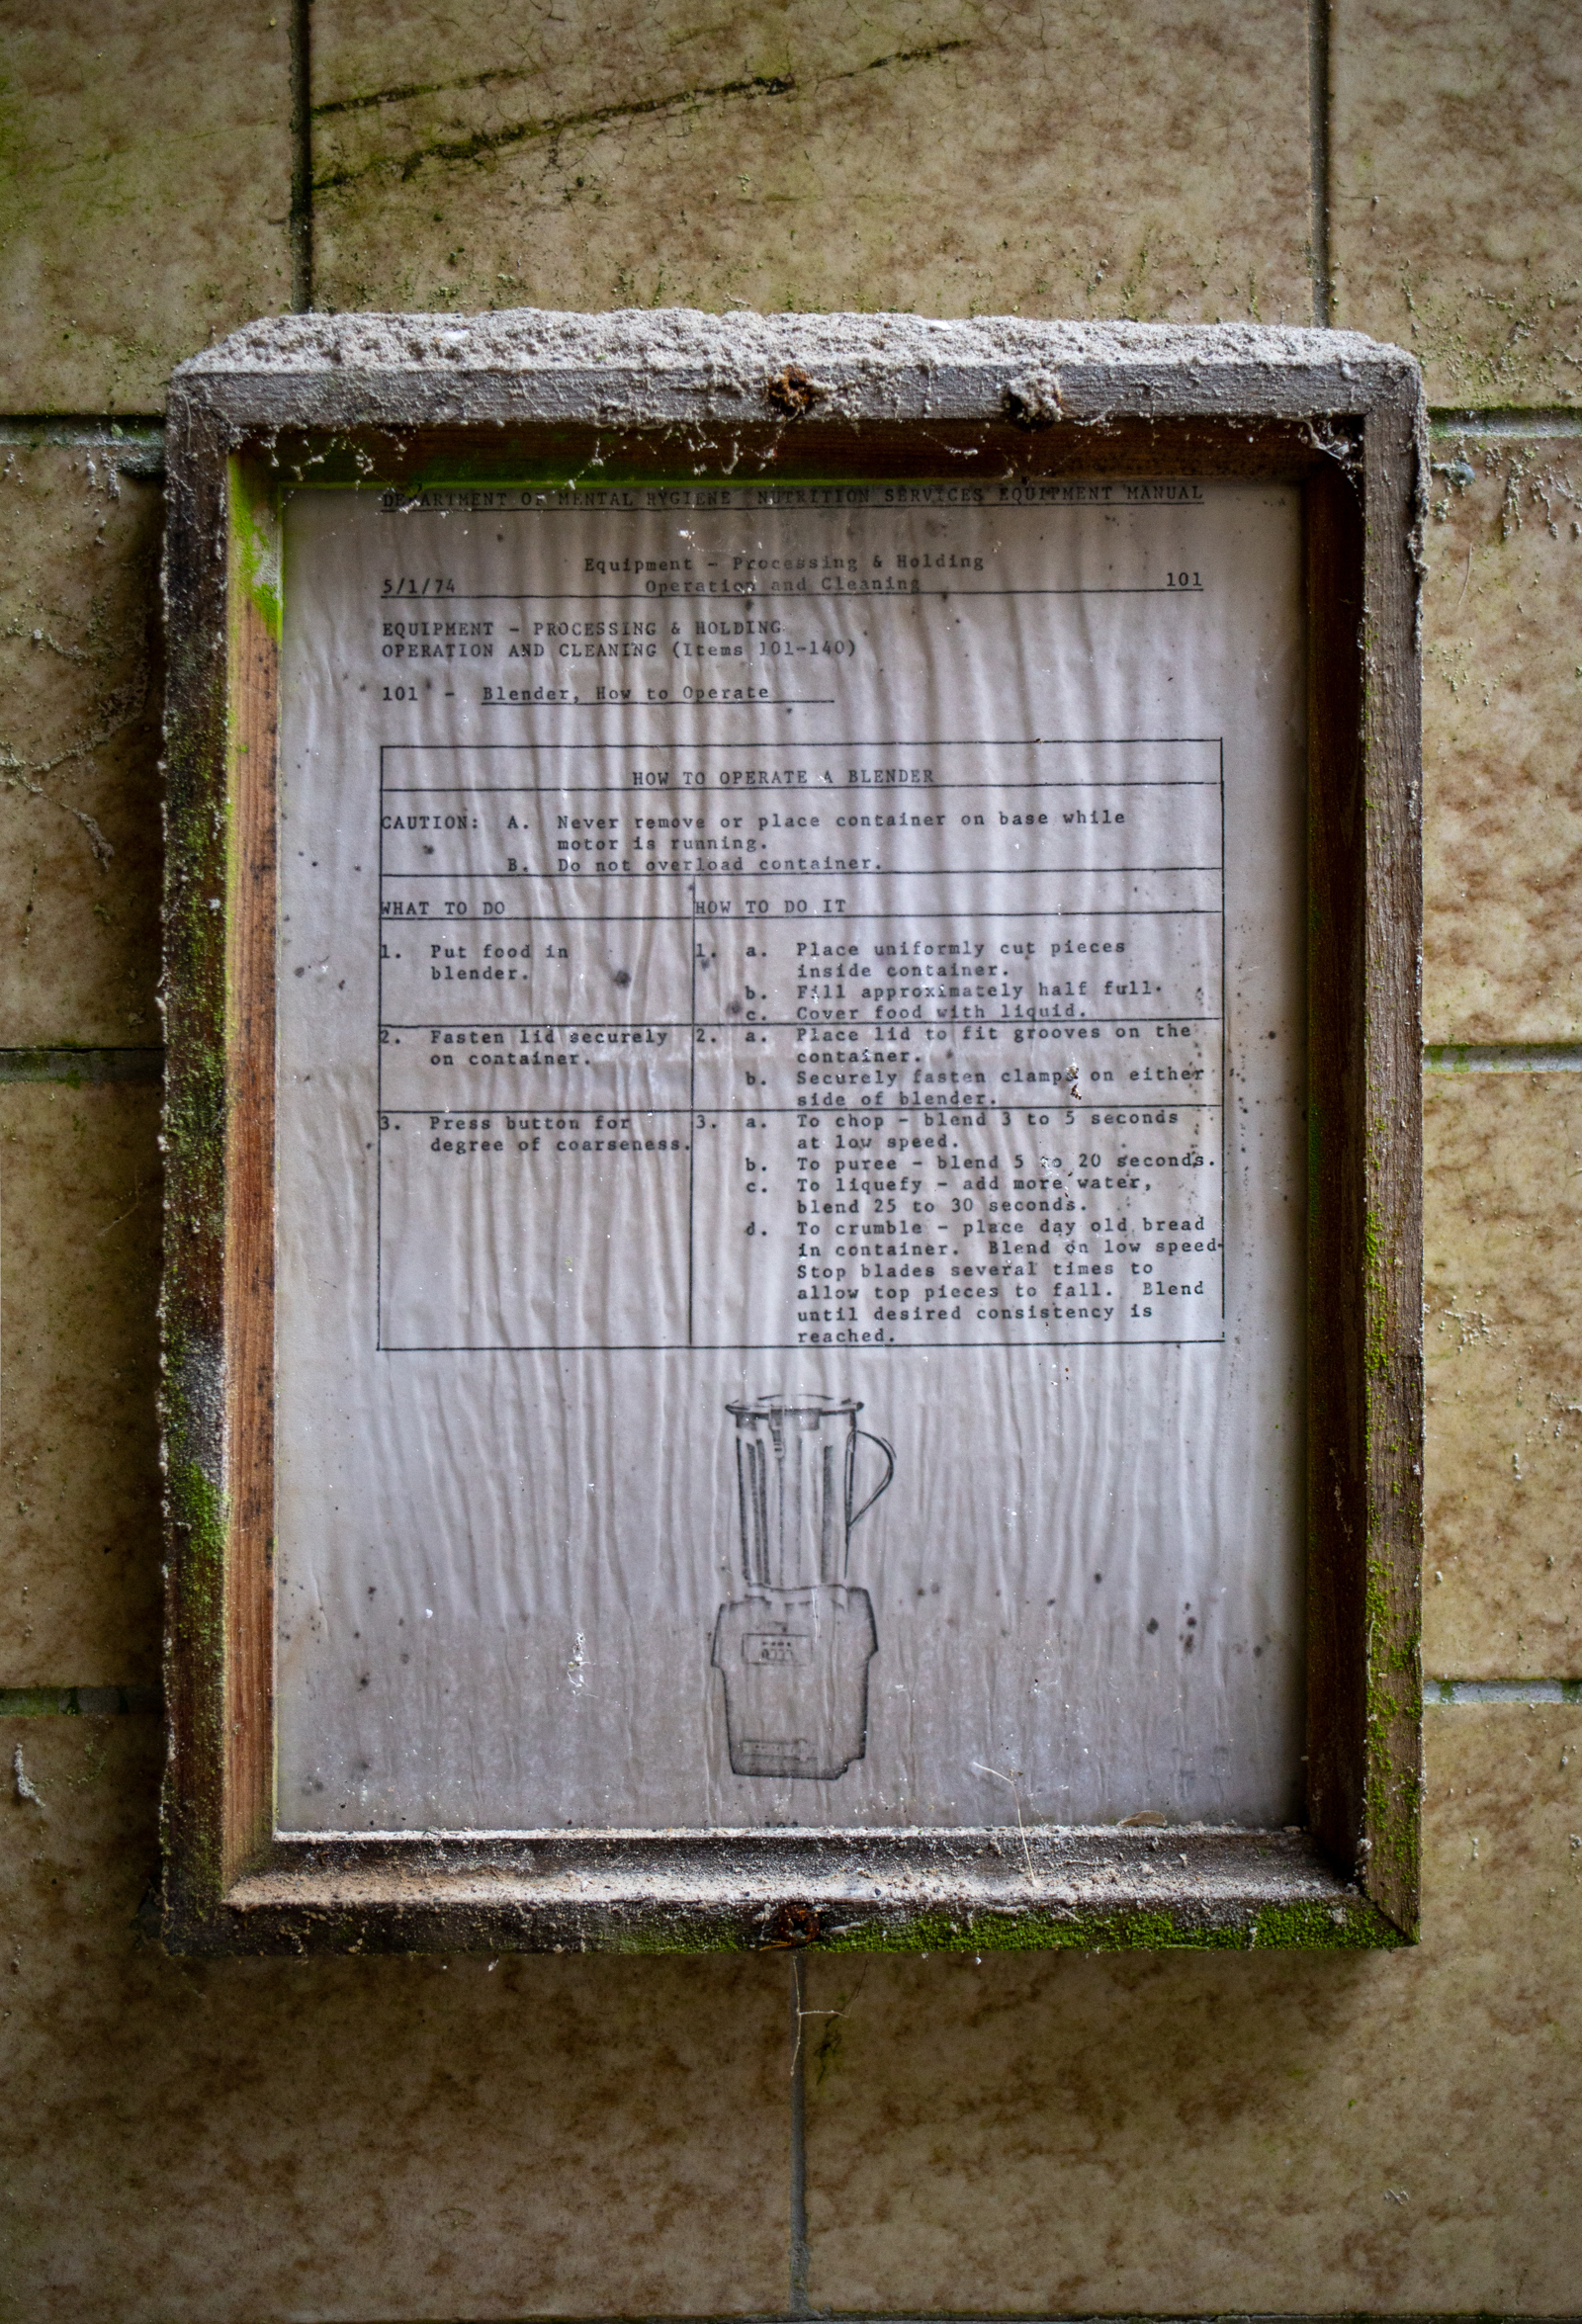 DEPARTMENT OF MENTAL HYGIENE NUTRITION SERVICES EQUIPMENT MANUAL
Equipment - Processing & Holding
5/1/74 Operation and Cleaning 101
EQUIPMENT - PROCESSING & HOLDING
OPERATION AND CLEANING (Items 101-140)
101 - Blender, How to Operate
HOW TO OPERATE A BLENDER
CAUTION: A. Never remove or place container on base while
motor is running.
B. Do not overload container.
WHAT TO DO
HOW TO DO IT
1. Put food in
blender.
1. a. Place uniformly cut pieces
inside container.
b. Fill approximately half full.
c. Cover food with liquid.
2. Fasten lid securely
on container.
2. a. Place lid to fit grooves on the
container.
b. Securely fasten clamps on either
side of blender.
3. Press button for
degree of coarseness.
3. a. To chop - blend 3 to 5 seconds
at low speed.
b. To puree - blend 5 to 20 seconds.
c. To liquefy - add more water,
blend 25 to 30 seconds.
d. To crumble - place day old bread
in container. Blend on low speed.
Stop blades several times to
allow top pieces to fall. Blend
until desired consistency is
reached.